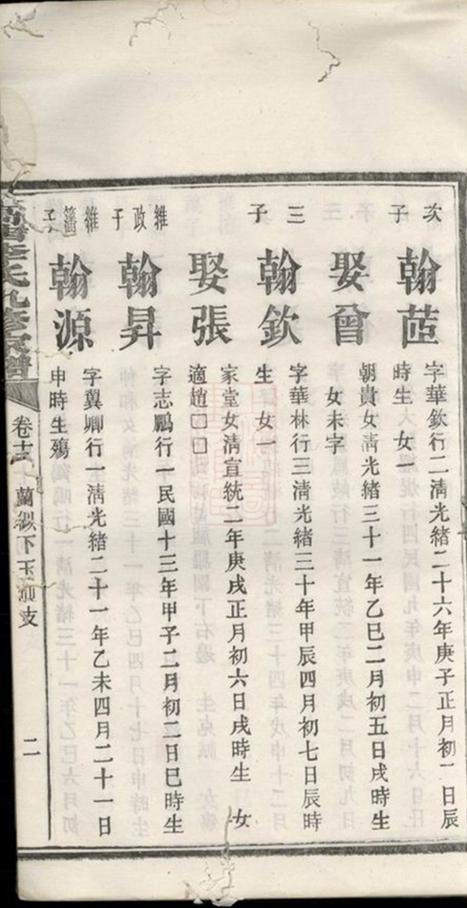 次子 翰茝 字華欽行二清光緒二十六年庚子正月初一日辰時生 女一
娶曾 朝貴女清光緒三十一年乙巳二月初五日戌時生 女未字
三子 翰欽 字華林行三清光緒三十年甲辰四月初七日辰時生 女一
娶張 家堂女清宣統二年庚戌正月初六日戌時生 女適趙□□
維政子 翰昇 字志鵬行一民國十三年甲子二月初二日巳時生
維藩子 翰源 字翼卿行一清光緒二十一年乙未四月二十一日申時生殤
氏九修家譜 卷十 下玉 支 二